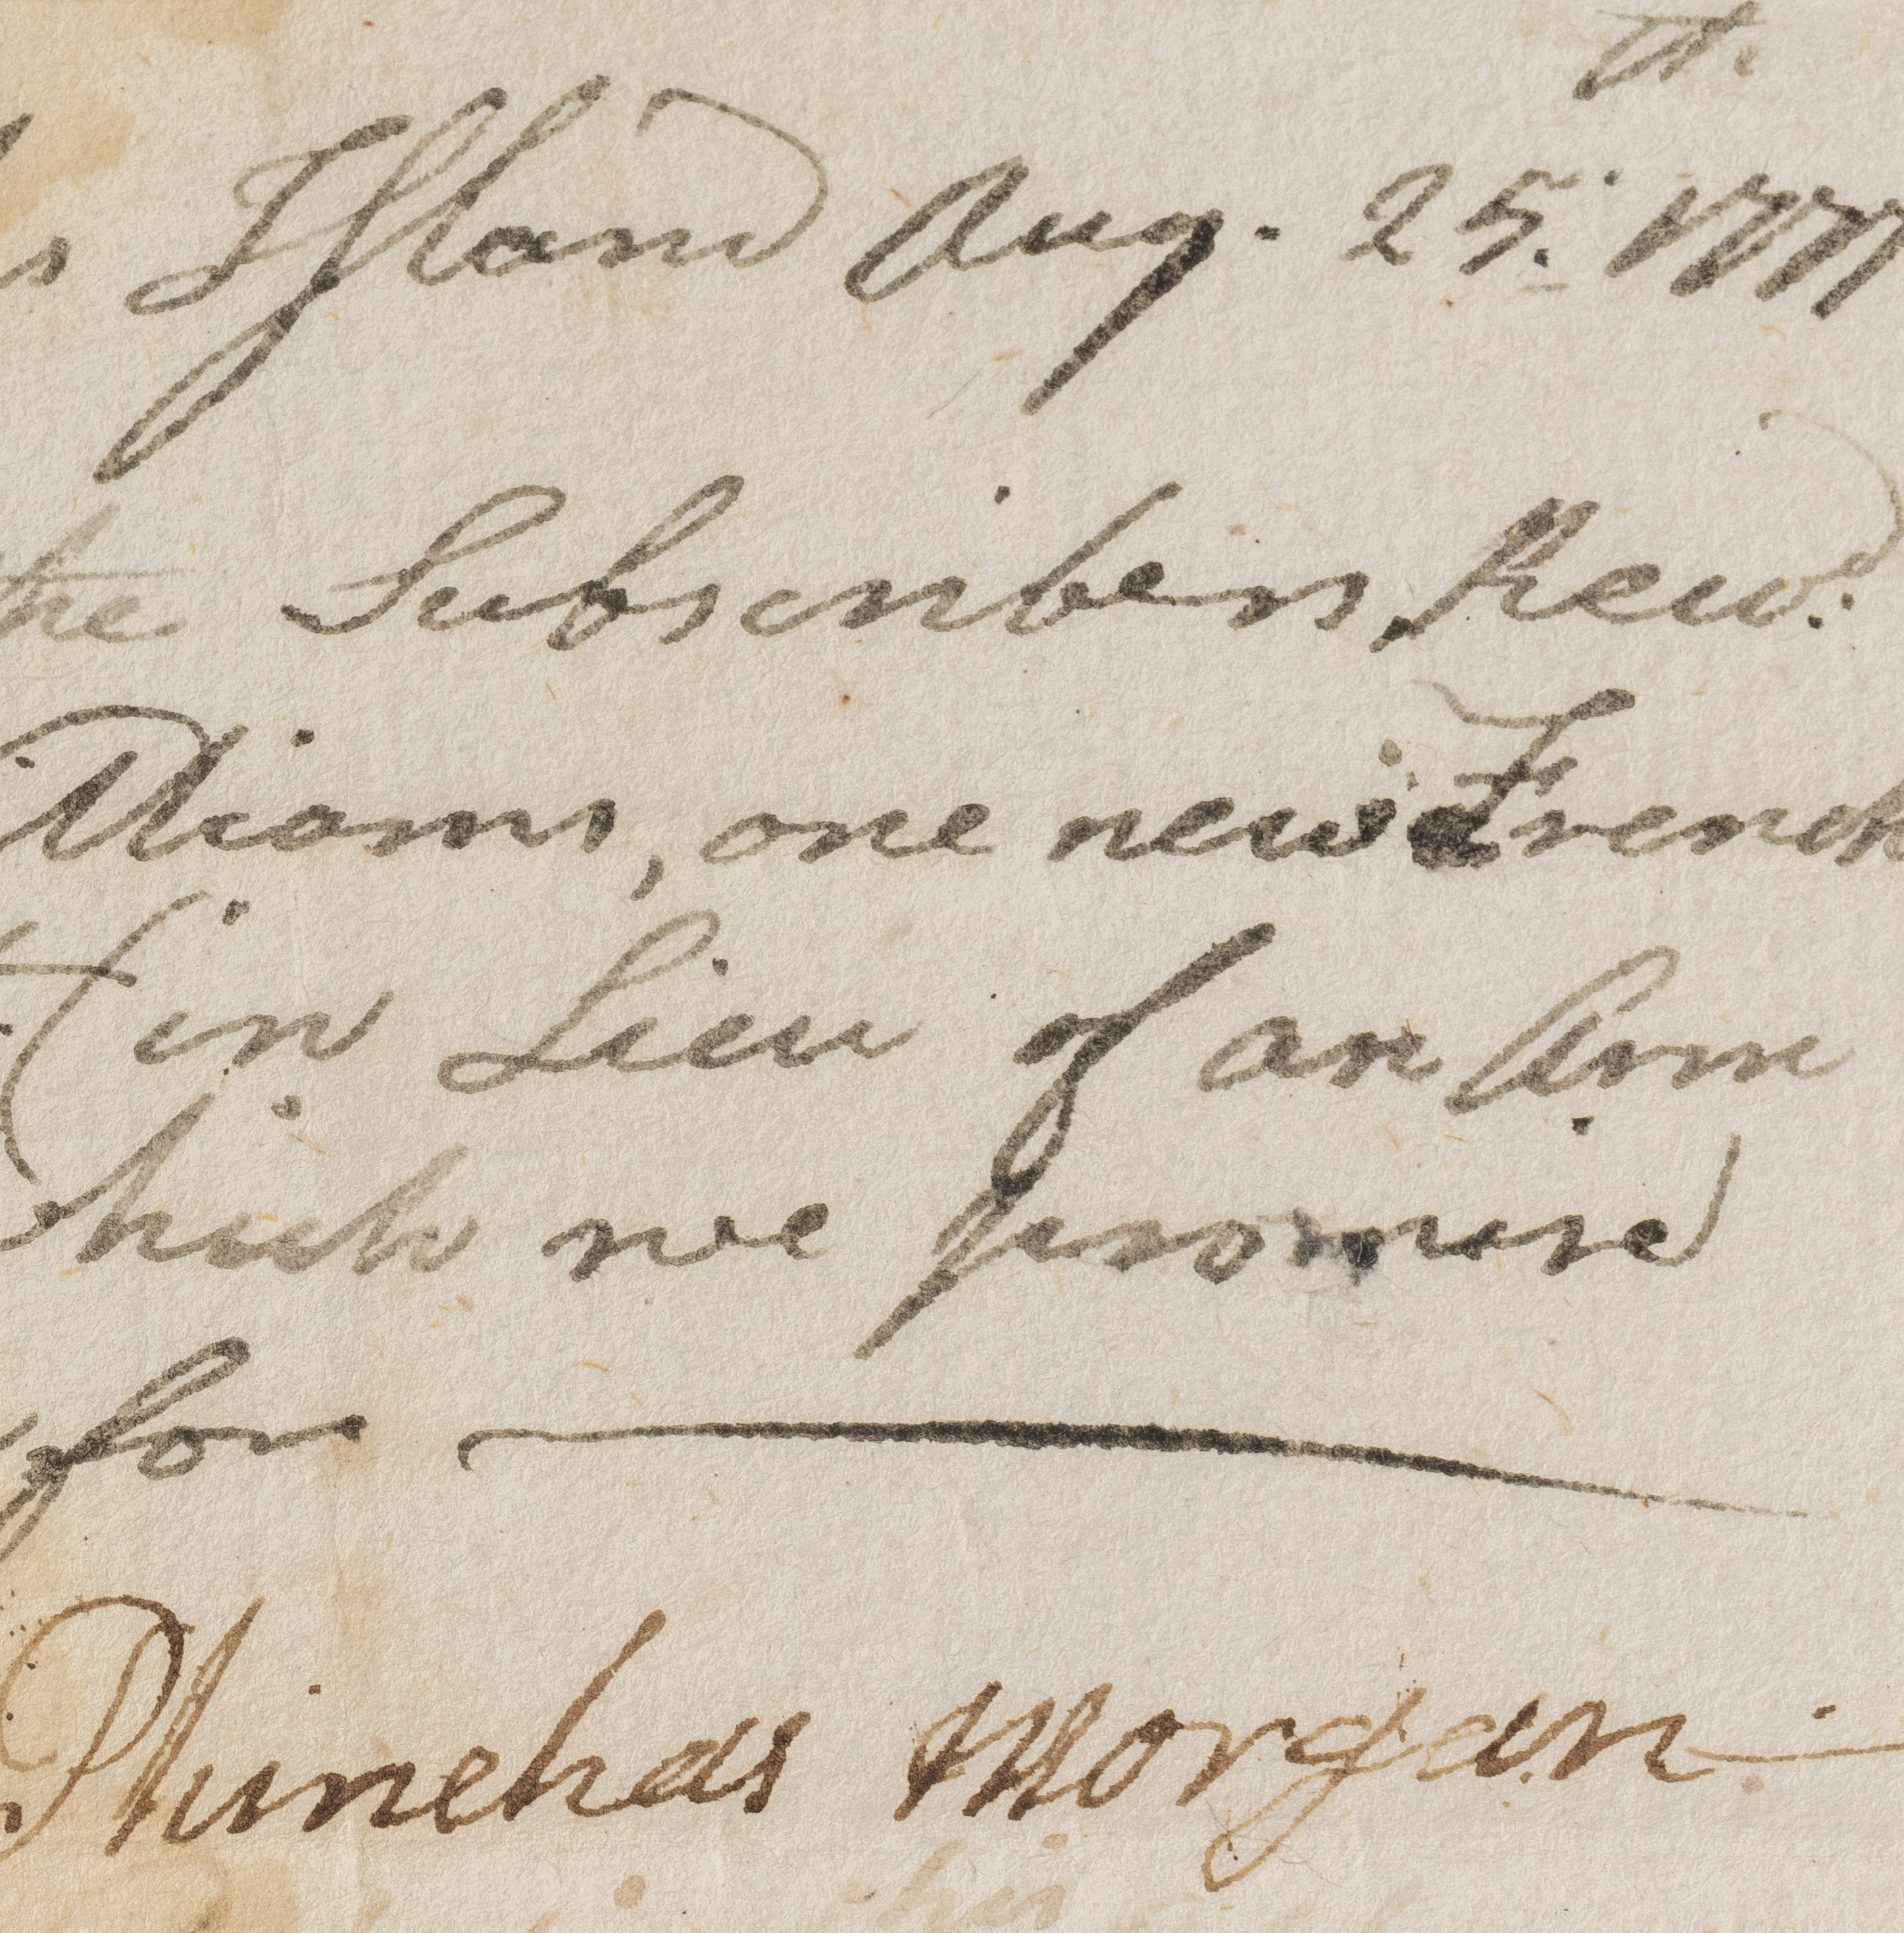 th.
s Island Aug. 25. 1777
the Subscribers, Recd.
illiams, one new French
in Lieu of an Arm
which we promise
for
Phinehas Morgan
his